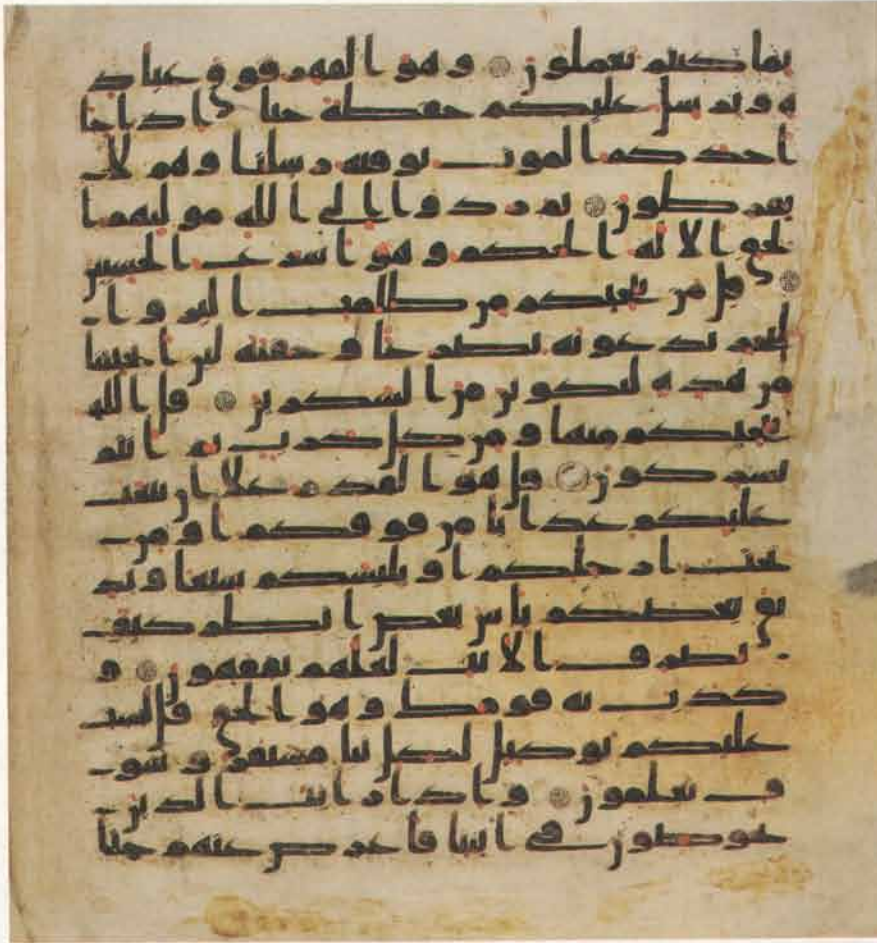 بما كنتم تعملون وهو القهر فوق عباد
ه ويرسل عليكم حفظة حتا اذا جا
احدكم الموت توفته رسلنا وهم لا
يفرطون ثم ردوا الى الله موليهم ا
لحق الا له الحكم وهو اسرع الحسبين
قل من ينجيكم من ظلمت البر وا
لبحر تدعونه تضرعا وخفية لين انجيتنا
من هذه لنكونن من الشكرين قل الله
ينجيكم منها ومن كل كرب ثم انتم
تشركون قل هو القدر علا ان يبعث
عليكم عذابا من فوقكم او من
تحت ارجلكم او يلبسكم شيعا ويذ
يق بعضكم باس بعض انظر كيف
نصرف الايت لعلهم يفقهون و
كذب به قومك وهو الحق قل لست
عليكم بوكيل لكل نبا مستقر وسو
ف تعلمون واذا رايت الذين
يخوضون في ايتنا فاعرض عنهم حتا